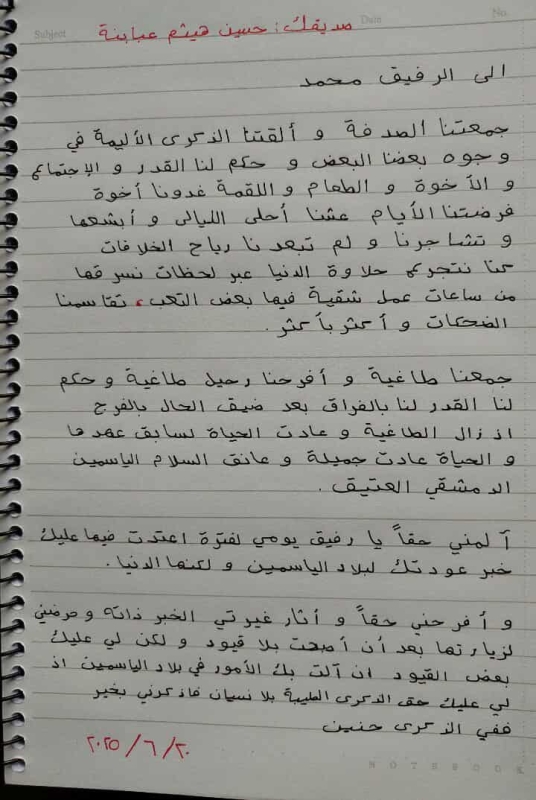 Subject
Date
No.
صديقك: حسين هيثم عبابنة
الى الرفيق محمد
جمعتنا الصدفة و ألقتنا الذكرى الأليمة في
وجوه بعضنا البعض و حكم لنا القدر و الإجتماع
و الأخوة و الطعام و اللقمة غدونا أخوة
فرضتنا الأيام عشنا أحلى الليالي و أبشعها
و تشاجرنا و لم تبعدنا رياح الخلافات
كنا نتجرع حلاوة الدنيا عبر لحظات نسرقها
من ساعات عمل شقية فيها بعض التعب، تقاسمنا
الضحكات و أكثر بأكثر.
جمعنا طاغية و أفرحنا رحيل طاغية و حكم
لنا القدر لنا بالفراق بعد ضيق الحال بالفرج
اذ زال الطاغية و عادت الحياة لسابق عهدها
و الحياة عادت جميلة و عانق السلام الياسمين
الدمشقي العتيق.
آلمني حقاً يا رفيق يومي لفترة اعتدت فيها عليك
خبر عودتك لبلاد الياسمين و لكنها الدنيا.
و أفرحني حقاً و أثار غيرتي الخبر ذاته و حرضني
لزيارتها بعد أن أصبحت بلا قيود و لكن لي عليك
بعض القيود ان آلت بك الأمور في بلاد الياسمين اذ
لي عليك حق الذكرى الطيبة بلا نسيان فاذكرني بخير
ففي الذكرى حنين
٢٠٢٥/٦/٢٠
NOTEBOOK